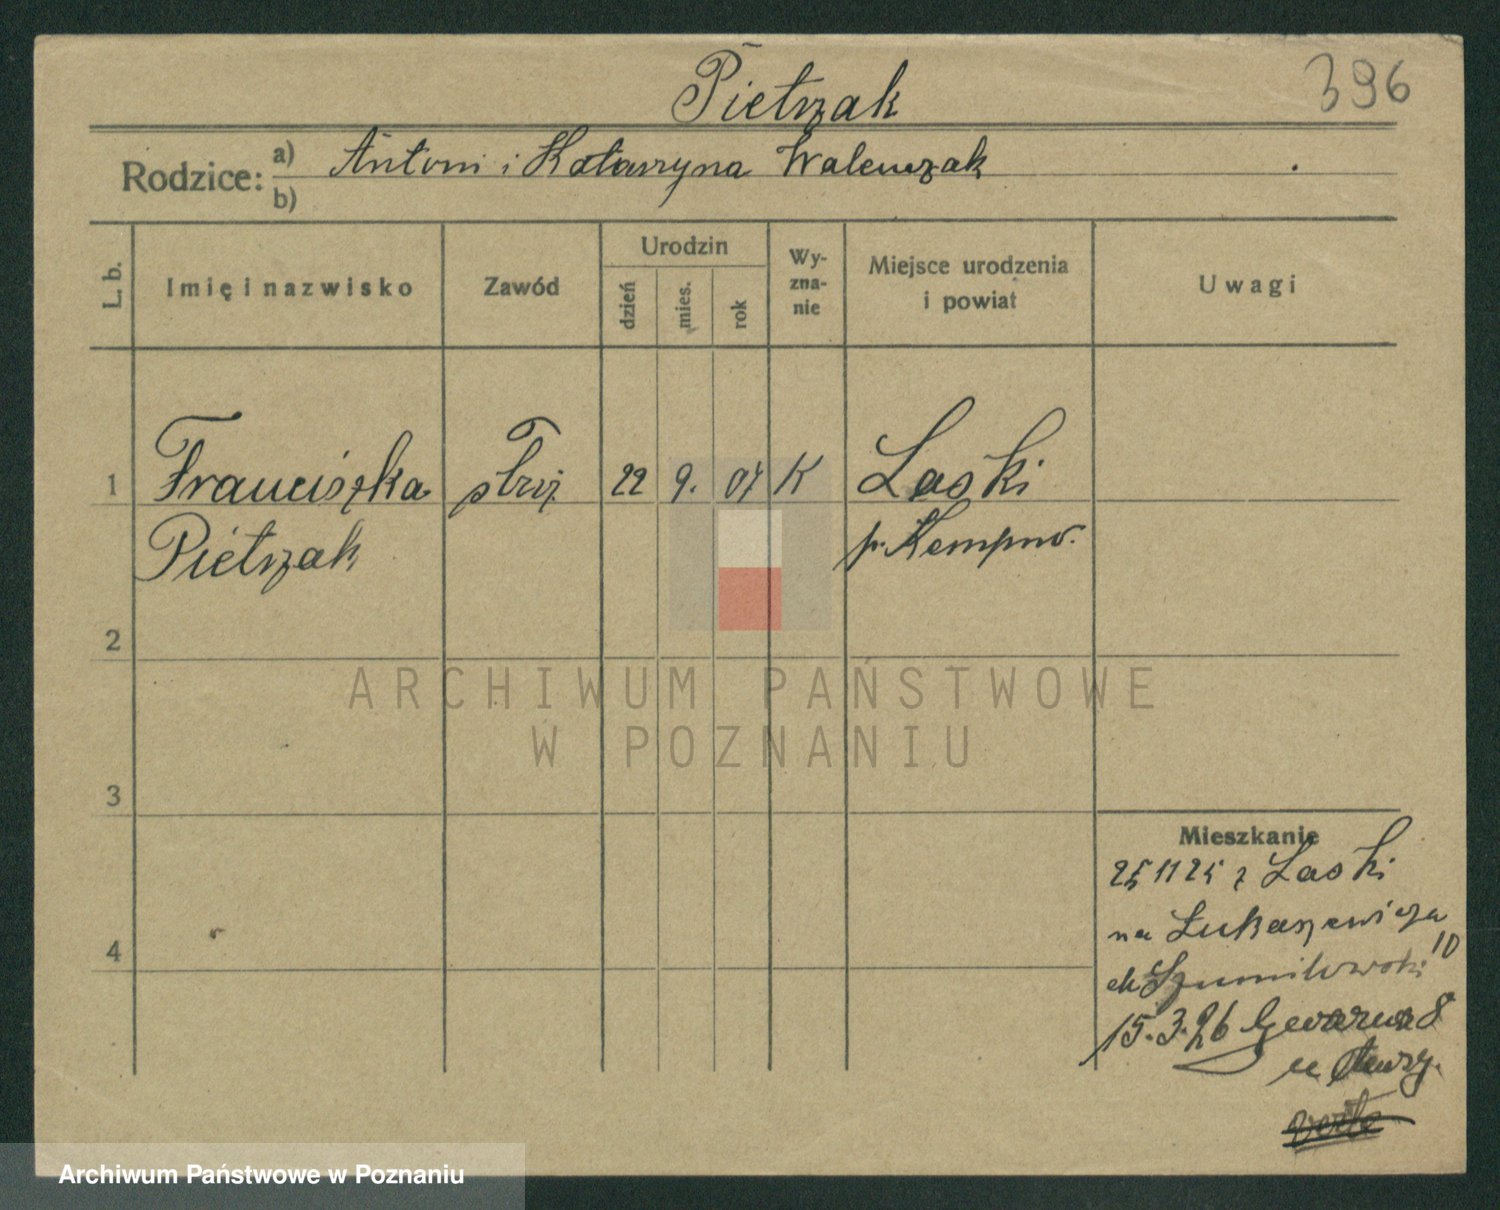 Pietrzak
396
Rodzice: a) Antoni i Katarzyna Walenczak
b)
L. b. Imię i nazwisko Zawód Urodzin dzień mies. rok Wyznanie Miejsce urodzenia i powiat Uwagi
1 Franciszka 22 9. 07 K Laski
Pietrzak p. Kempno.
2
3
4
Mieszkanie
25 11 25 z Laski
na Łukaszewicza 10
15.3.26 8
u
verte
ARCHIWUM PAŃSTWOWE
W POZNANIU
Archiwum Państwowe w Poznaniu